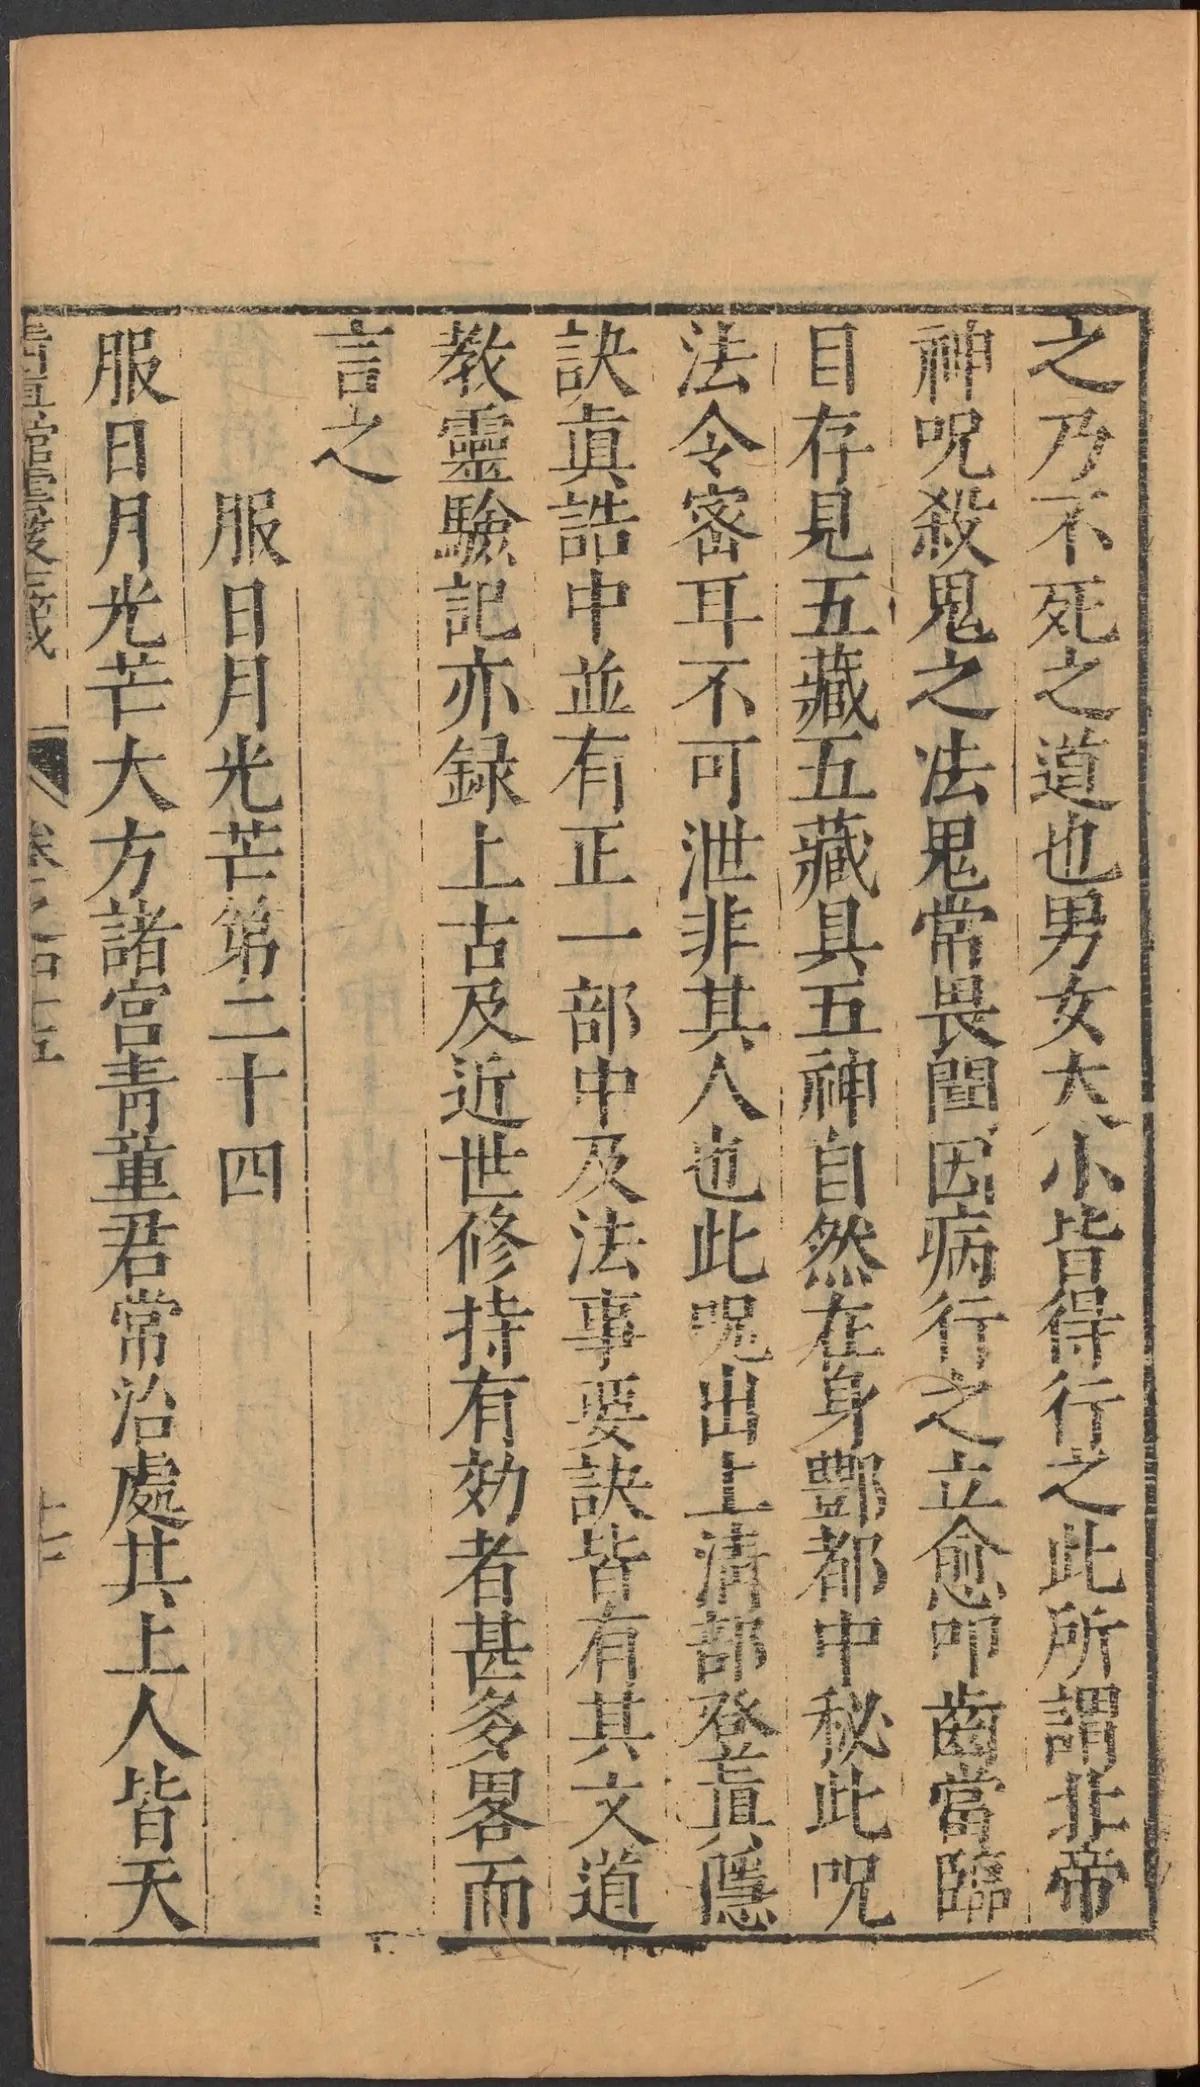 之乃不死之道也男女大小皆得行之此所謂北帝
神呪殺鬼之法鬼常畏聞因病行之立愈叩齒當臨
目存見五藏五藏具五神自然在身酆都中秘此呪
法令密耳不可泄非其人也此呪出上清部登眞隱
訣眞誥中並有正一部中及法事要訣皆有其文道
教靈驗記亦録上古及近世修持有効者甚多畧而
言之
服日月光芒第二十四
服日月光芒大方諸宮青童君常治處其上人皆天